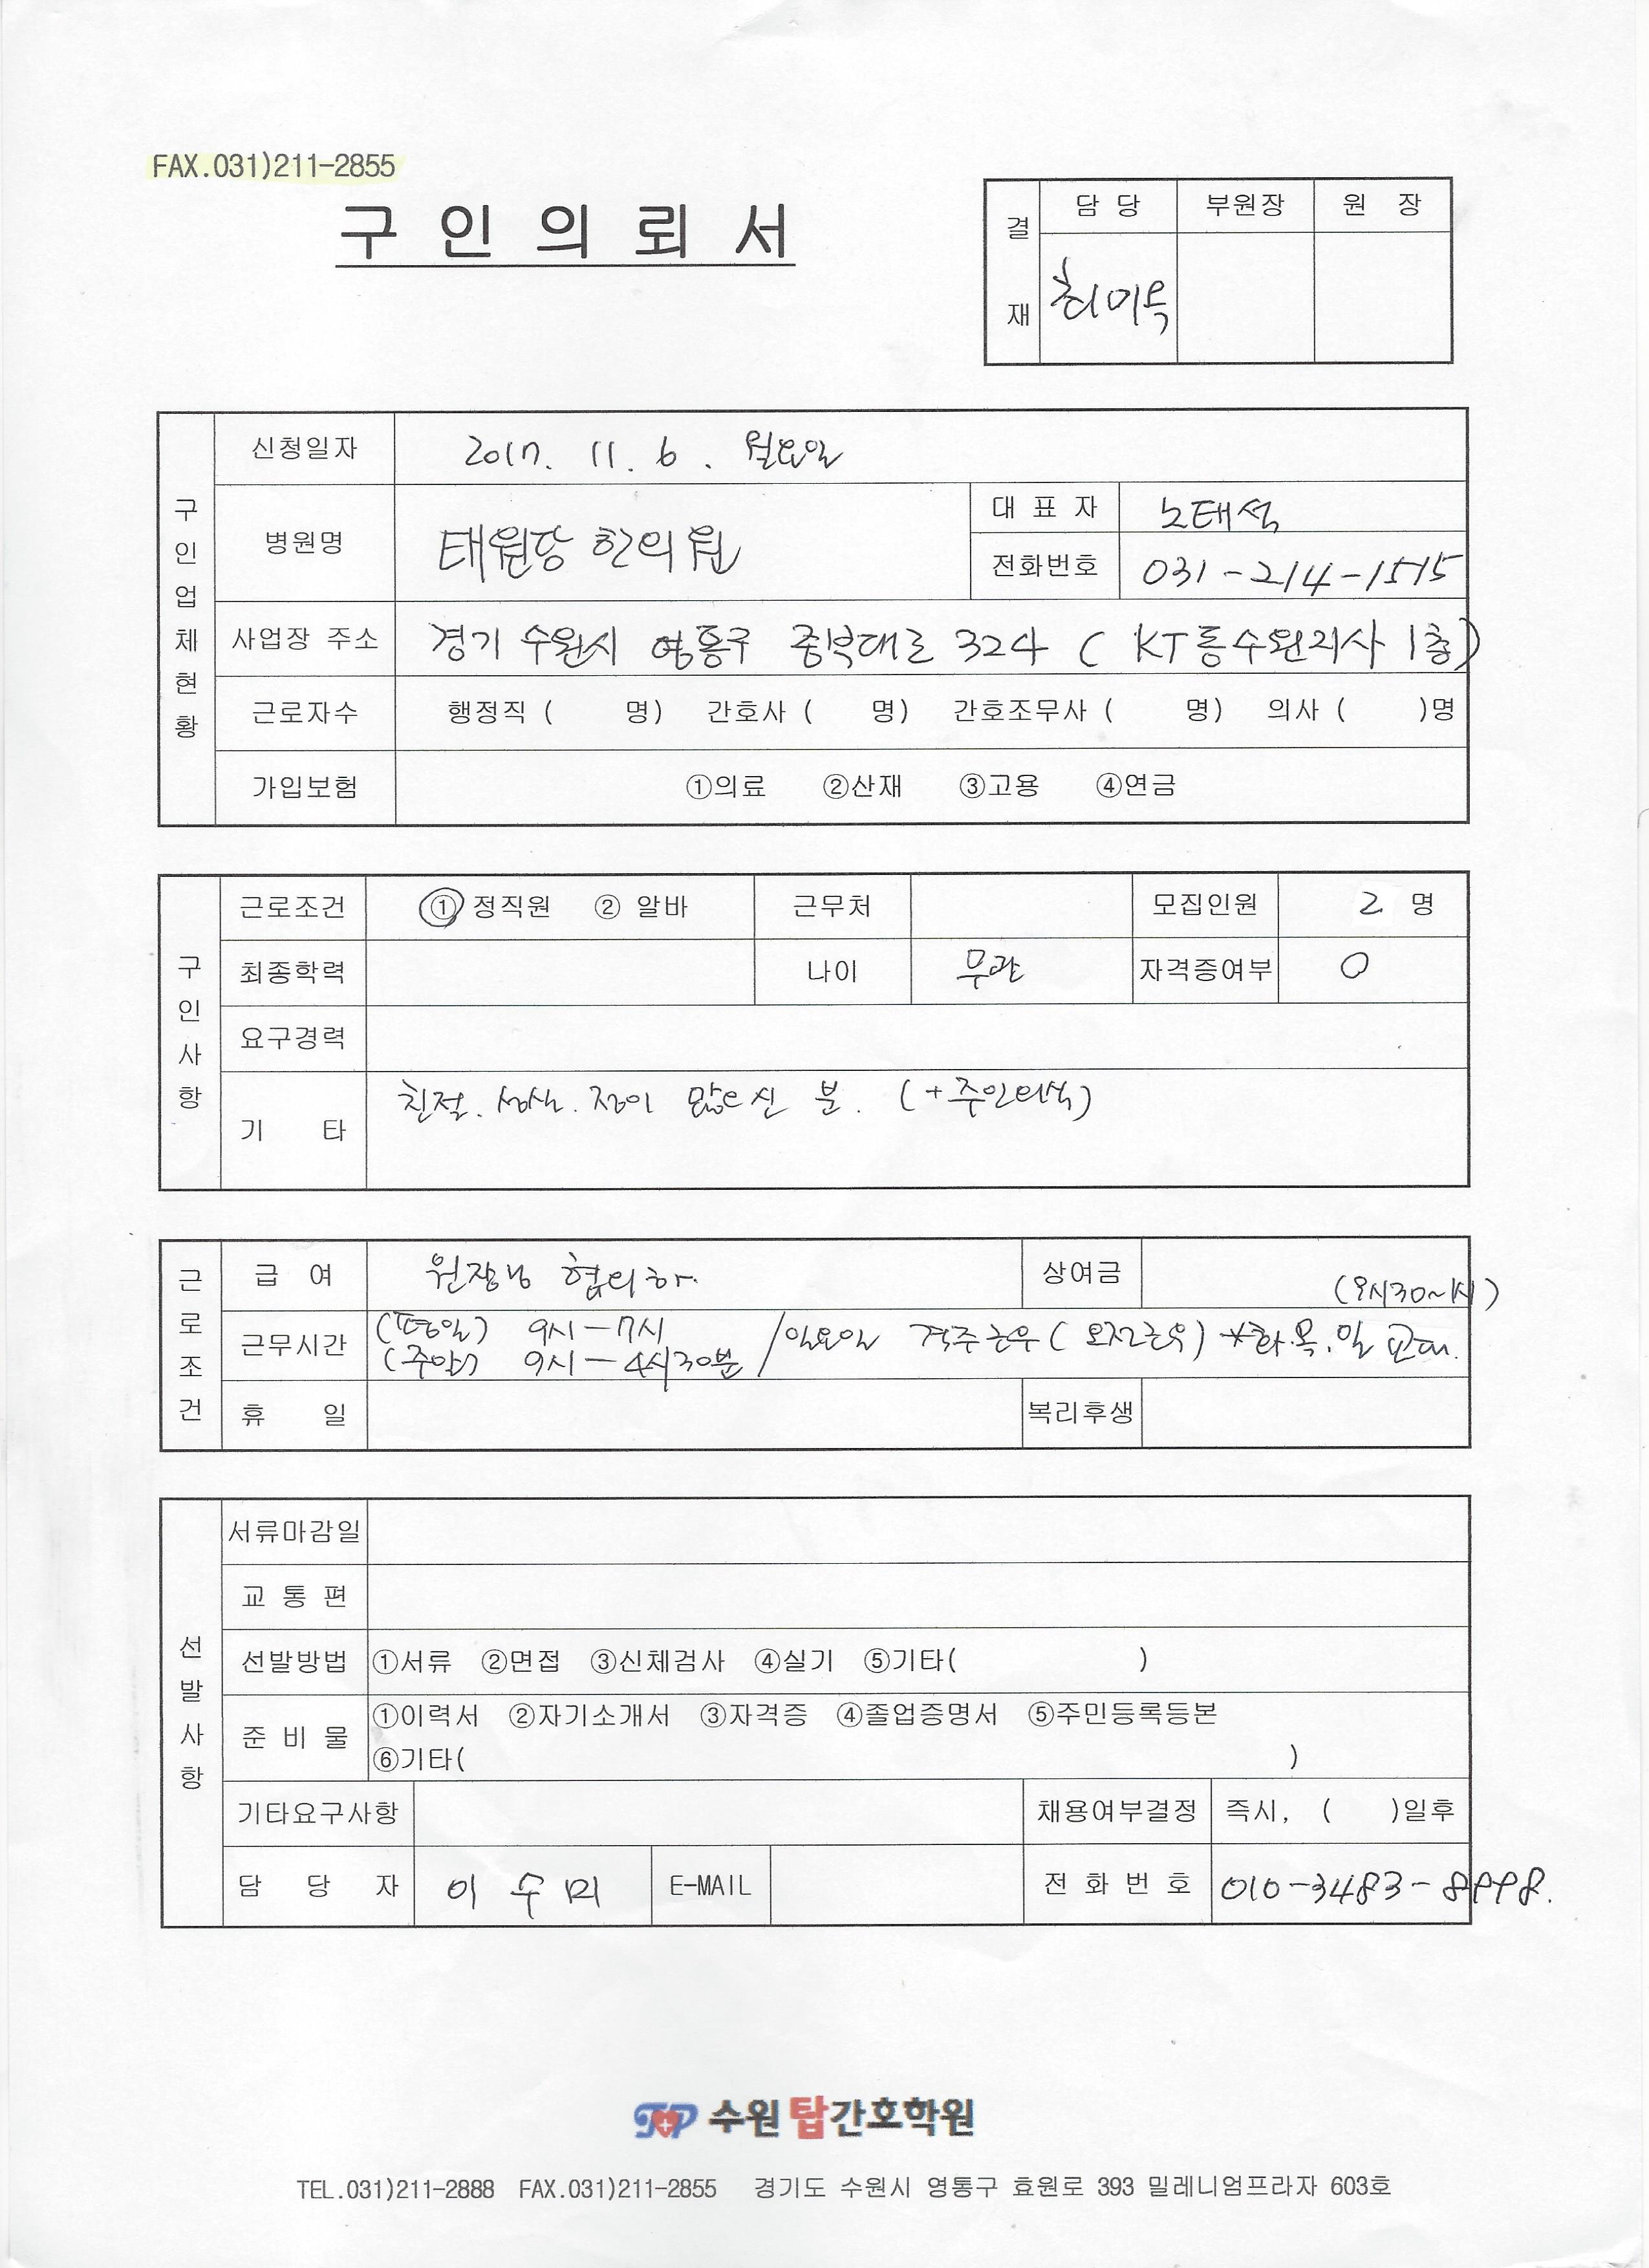 FAX.031)211-2855
구 인 의 뢰 서
결 재
담 당 부원장 원 장
최미옥
구인업체현황
신청일자 2017. 11. 6. 월요일
병원명 태원당 한의원
대 표 자 노태석
전화번호 031-214-1515
사업장 주소 경기 수원시 영통구 중부대로 324 ( KT동수원지사 1층)
근로자수 행정직 ( 명) 간호사 ( 명) 간호조무사 ( 명) 의사 ( )명
가입보험 ①의료 ②산재 ③고용 ④연금
구인사항
근로조건 ① 정직원 ② 알바 근무처 모집인원 2 명
최종학력 나이 무관 자격증여부 O
요구경력
기 타 친절. 성실. 정이 많으신 분. (+주인의식)
근로조건
급 여 원장님 협의하. 상여금
(9시30~1시)
근무시간 (평일) 9시-7시 / 일요일 격주근무( 오전근무) *화.목.일 교대.
(주말) 9시-4시30분
휴 일 복리후생
선발사항
서류마감일
교 통 편
선발방법 ①서류 ②면접 ③신체검사 ④실기 ⑤기타( )
준 비 물 ①이력서 ②자기소개서 ③자격증 ④졸업증명서 ⑤주민등록등본
⑥기타( )
기타요구사항 채용여부결정 즉시, ( )일후
담 당 자 이 수 미 E-MAIL 전 화 번 호 010-3483-8998.
TOP 수원 탑간호학원
TEL.031)211-2888 FAX.031)211-2855 경기도 수원시 영통구 효원로 393 밀레니엄프라자 603호